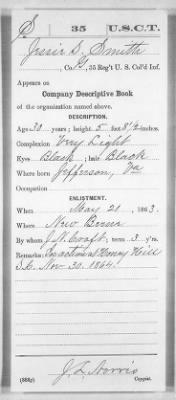 S | 35 | U.S.C.T.
Jessie S. Smith
, Co. G, 35 Reg't U. S. Col'd Inf.
Appears on
Company Descriptive Book
of the organization named above.
DESCRIPTION.
Age 30 years; height 5 feet 8 1/2 inches.
Complexion Very Light
Eyes Black; hair Black
Where born Jefferson, Va
Occupation
ENLISTMENT.
When May 21, 1863.
Where New Berne
By whom J. N. Croft; term 3 y'rs.
Remarks: In action at Honey Hill
S.C. Nov. 30. 1864.
J. L. Norris
(383g) Copyist.